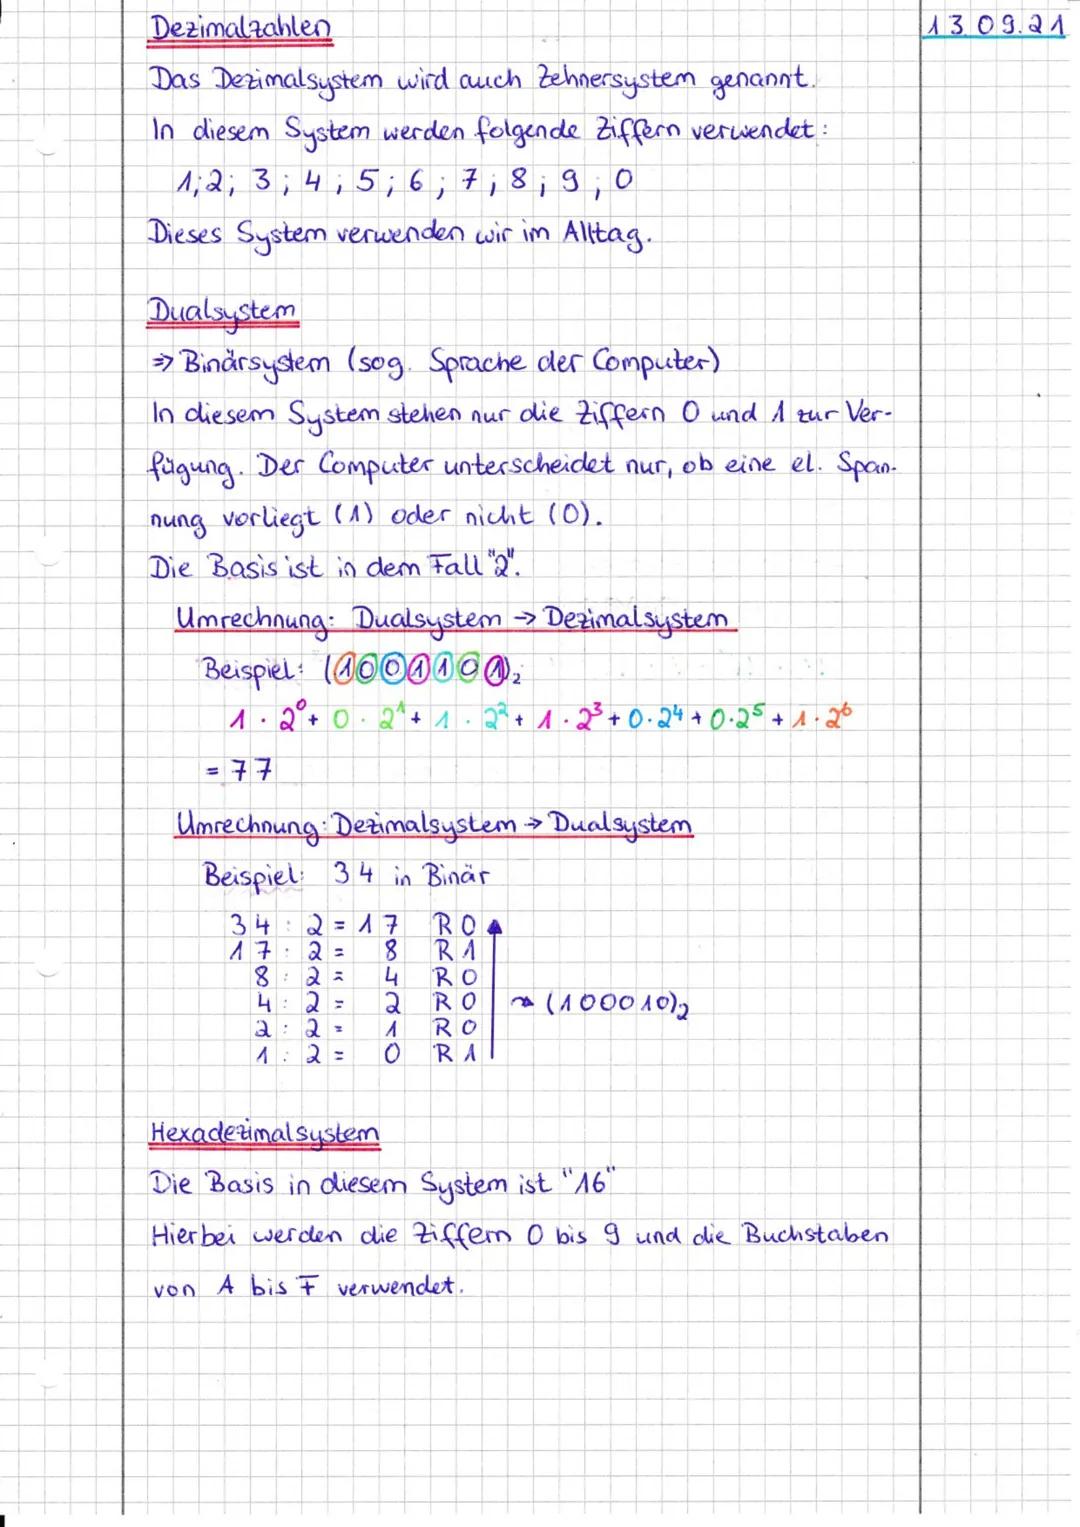 Dezimalzahlen
13.09.21
Das Dezimalsystem wird auch Zehnersystem genannt.
In diesem System werden folgende Ziffern verwendet:
1; 2; 3; 4; 5; 6; 7; 8; 9; 0
Dieses System verwenden wir im Alltag.
Dualsystem
=> Binärsystem (sog. Sprache der Computer)
In diesem System stehen nur die Ziffern 0 und 1 zur Ver-
fügung. Der Computer unterscheidet nur, ob eine el. Span-
nung vorliegt (1) oder nicht (0).
Die Basis ist in dem Fall "2".
Umrechnung: Dualsystem → Dezimalsystem
Beispiel: (1001101)₂
1 · 2⁰ + 0 · 2¹ + 1 · 2² + 1 · 2³ + 0 · 2⁴ + 0 · 2⁵ + 1 · 2⁶
= 77
Umrechnung: Dezimalsystem → Dualsystem
Beispiel: 34 in Binär
34 : 2 = 17 R 0
17 : 2 = 8 R 1
8 : 2 = 4 R 0
4 : 2 = 2 R 0 ↝ (100010)₂
2 : 2 = 1 R 0
1 : 2 = 0 R 1
Hexadezimalsystem
Die Basis in diesem System ist "16"
Hierbei werden die Ziffern 0 bis 9 und die Buchstaben
von A bis F verwendet.